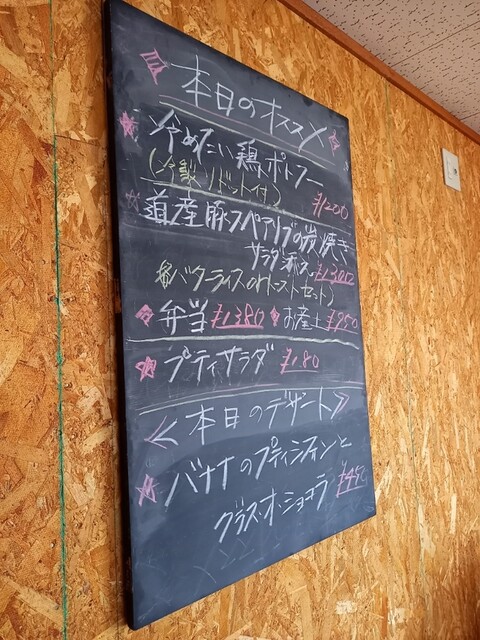 本日のオススメ
冷めたい鶏ポトフー
(冷製リドット付) ¥1200
道産豚スペアリブの炭焼き
サラダ添え ¥1300
バターライス or トーストセット)
弁当 ¥1380 お産土 ¥950
プティサラダ ¥180
<本日のデザート>
バナナのプティンフィンと ¥450
グラス・オ・ショコラ